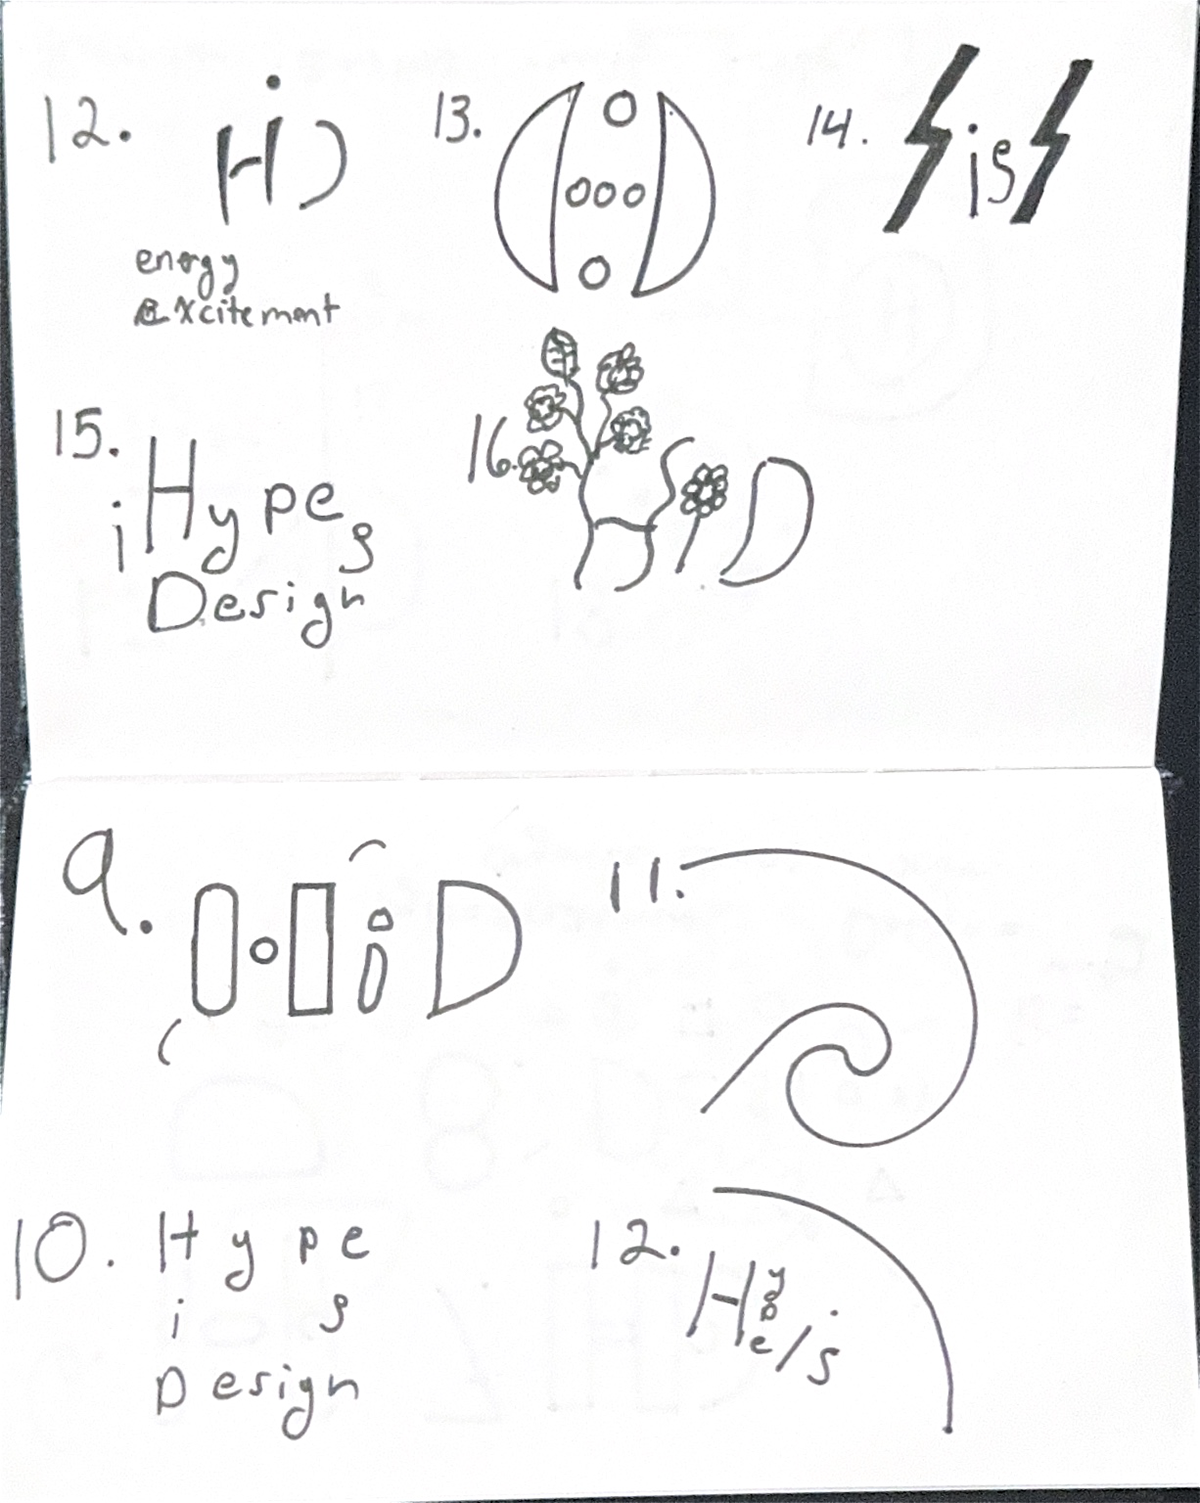 12. HiD
energy
excitement
13.
14. is
15.
iHypes
Design
16. HiD
9. HiD
10. Hype
i s
Design
11.
12. Hype/is